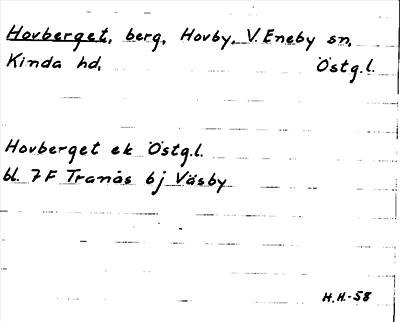 Hovberget, berg, Hovby, V. Eneby sn,
Kinda hd, Östg.l.
Hovberget ek Östg.l.
bl. 7F Tranås 6j Väsby
H.H.-58